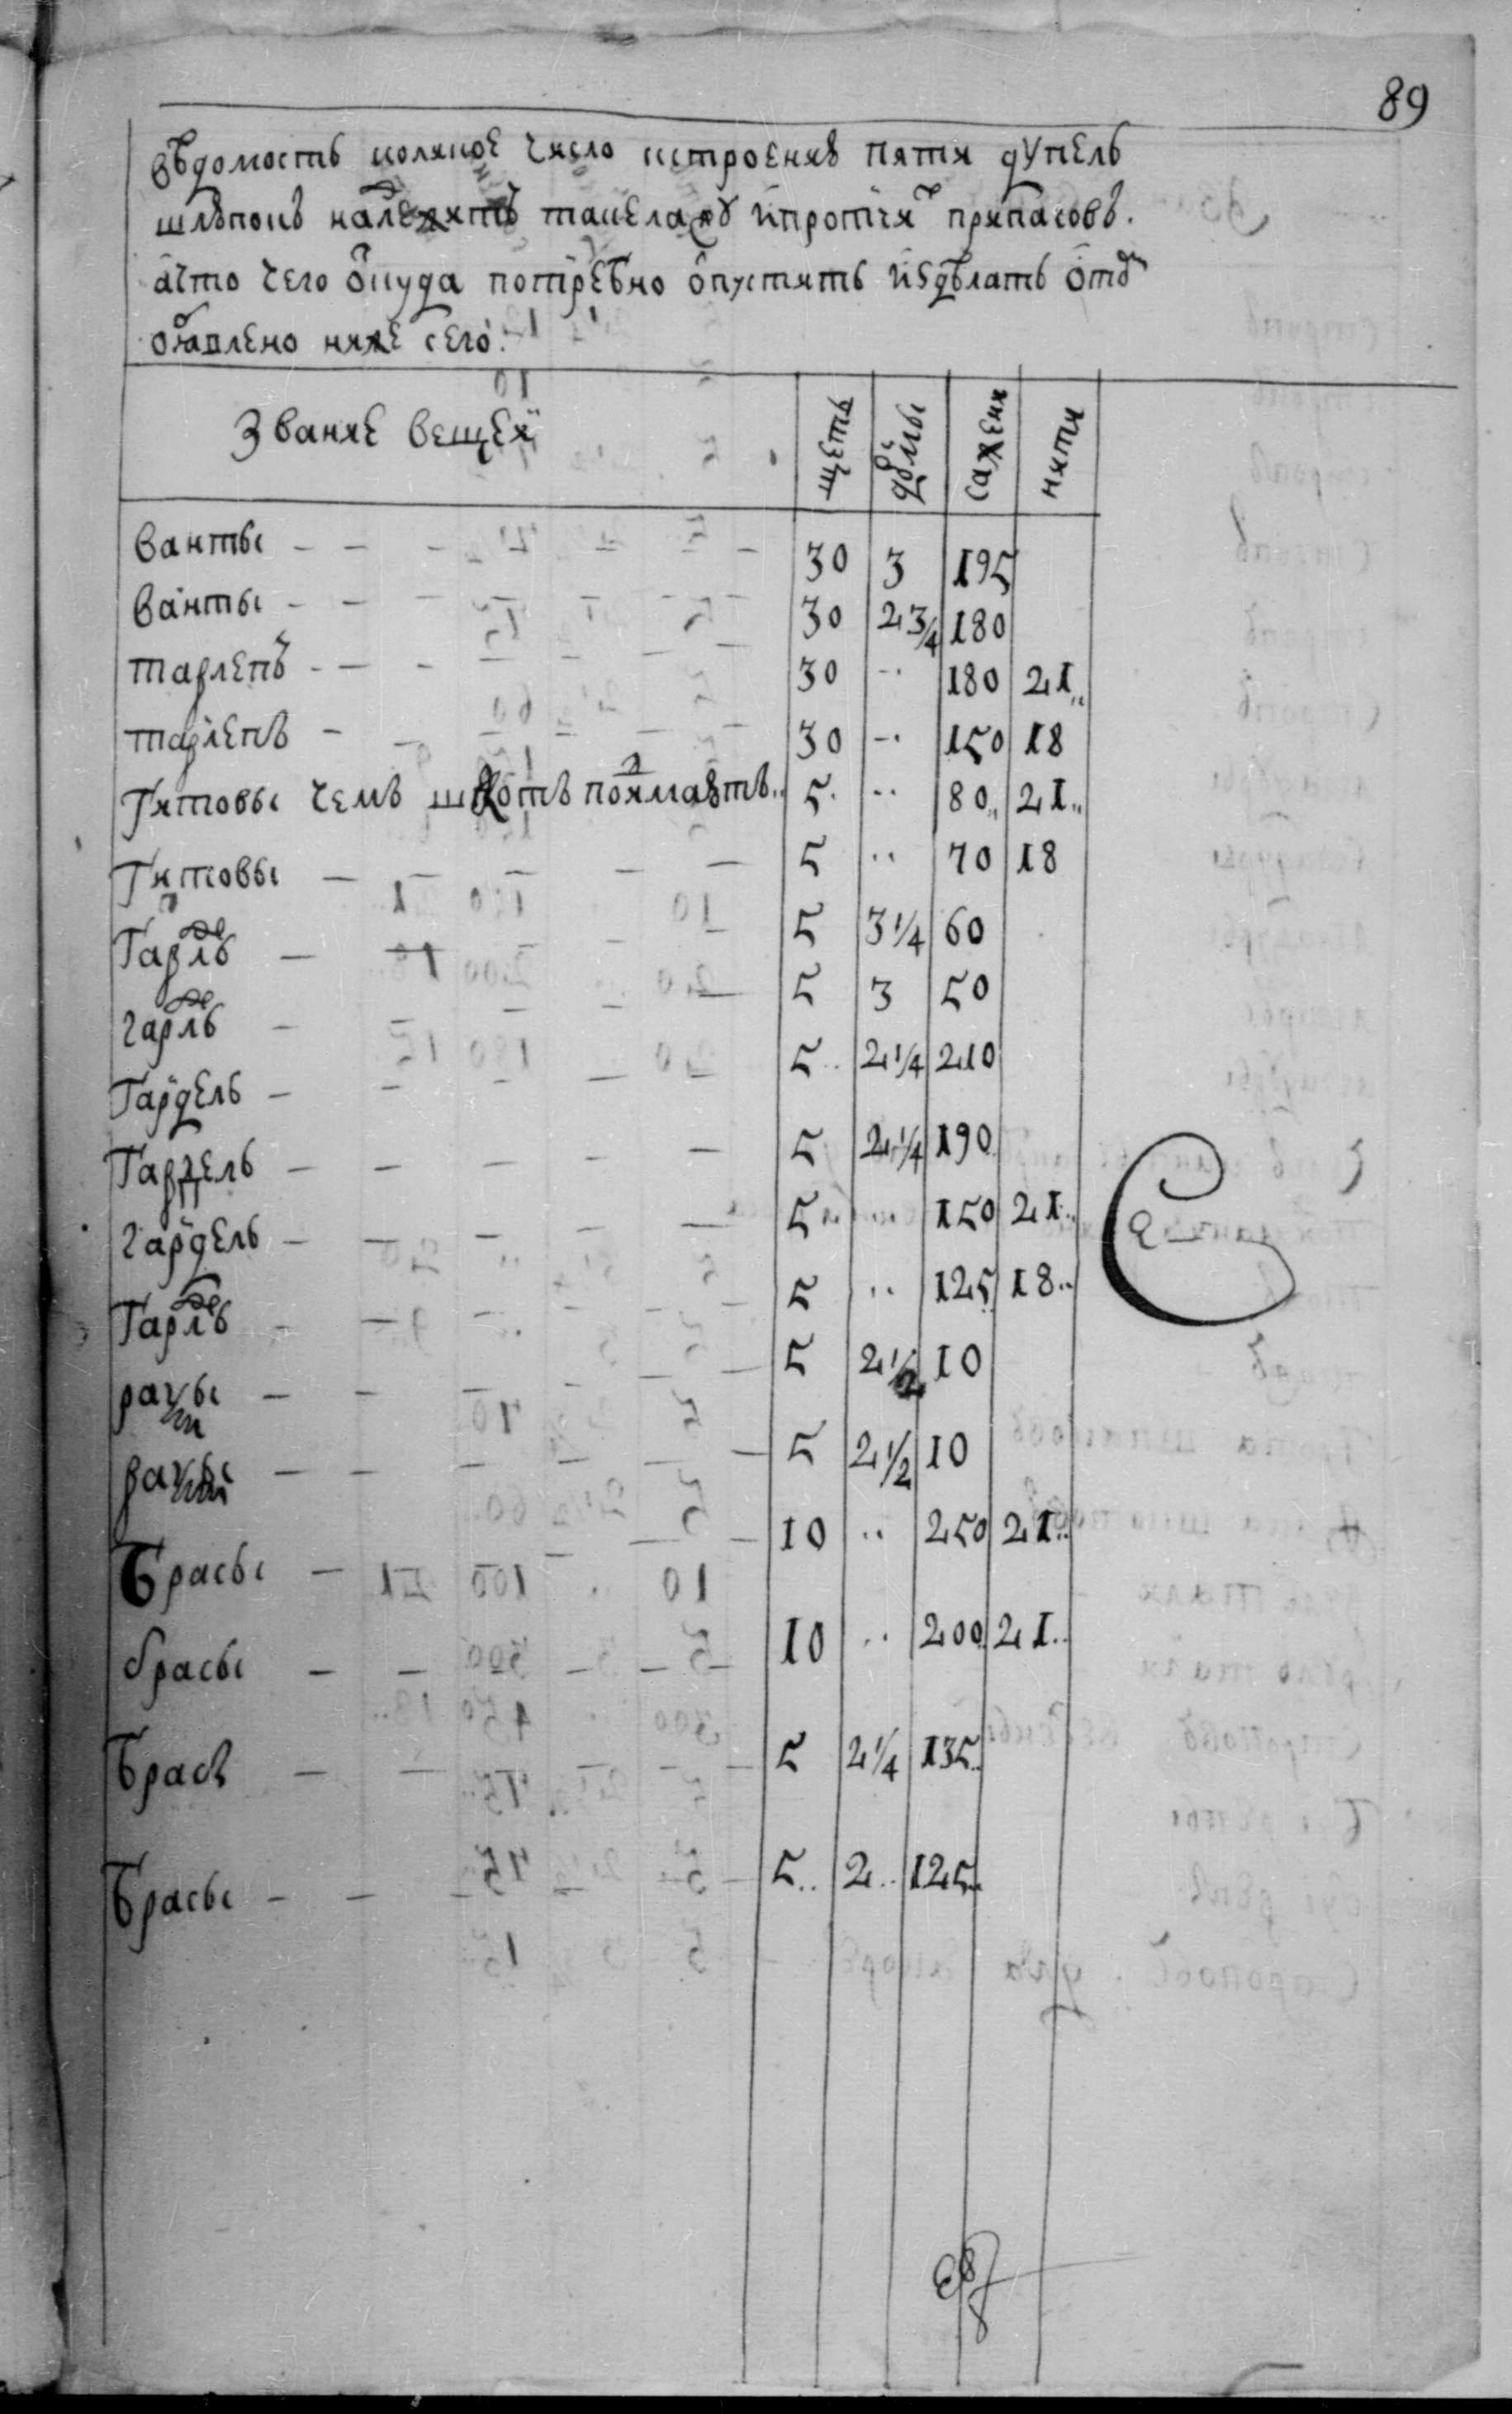 89
вѣдомость коликое число кстроению пяти дупель
шлюпокъ надлежитъ такелажу ипротчихъ припасовъ.
ачто чего откуда потребно отпустить исдѣлать отом
объявлено ниже сего:
Звание вещей щетъ дюймы сажени нити
ванты - - - - 30 3 195
ванты - - - - 30 2 3/4 180
тарлепъ - - - - 30 .. 180 21..
тарлепъ - - - 30 .. 150 18
Гитовы чемъ шкотъ поимаютъ.. 5. .. 80.. 21..
Гитовы - - - - 5 .. 70 18
Гардель - - - - 5 3 1/4 60
гардель - - - - 5 3 50
Гардель - - - - 5.. 2 1/4 210
Гардель - - - - 5 2 1/4 190
гардель - - - - 5 .. 150 21..
Гардель - - - - 5 .. 125 18..
раксы - - - - 5 2 1/2 10
раксы - - - - 5 2 1/2 10
Брасы - - - - 10 .. 250 21..
брасы - - - - 10 .. 200.. 21..
Брасъ - - - - 5 2 1/4 135..
Брасы - - - - 5.. 2.. 125..